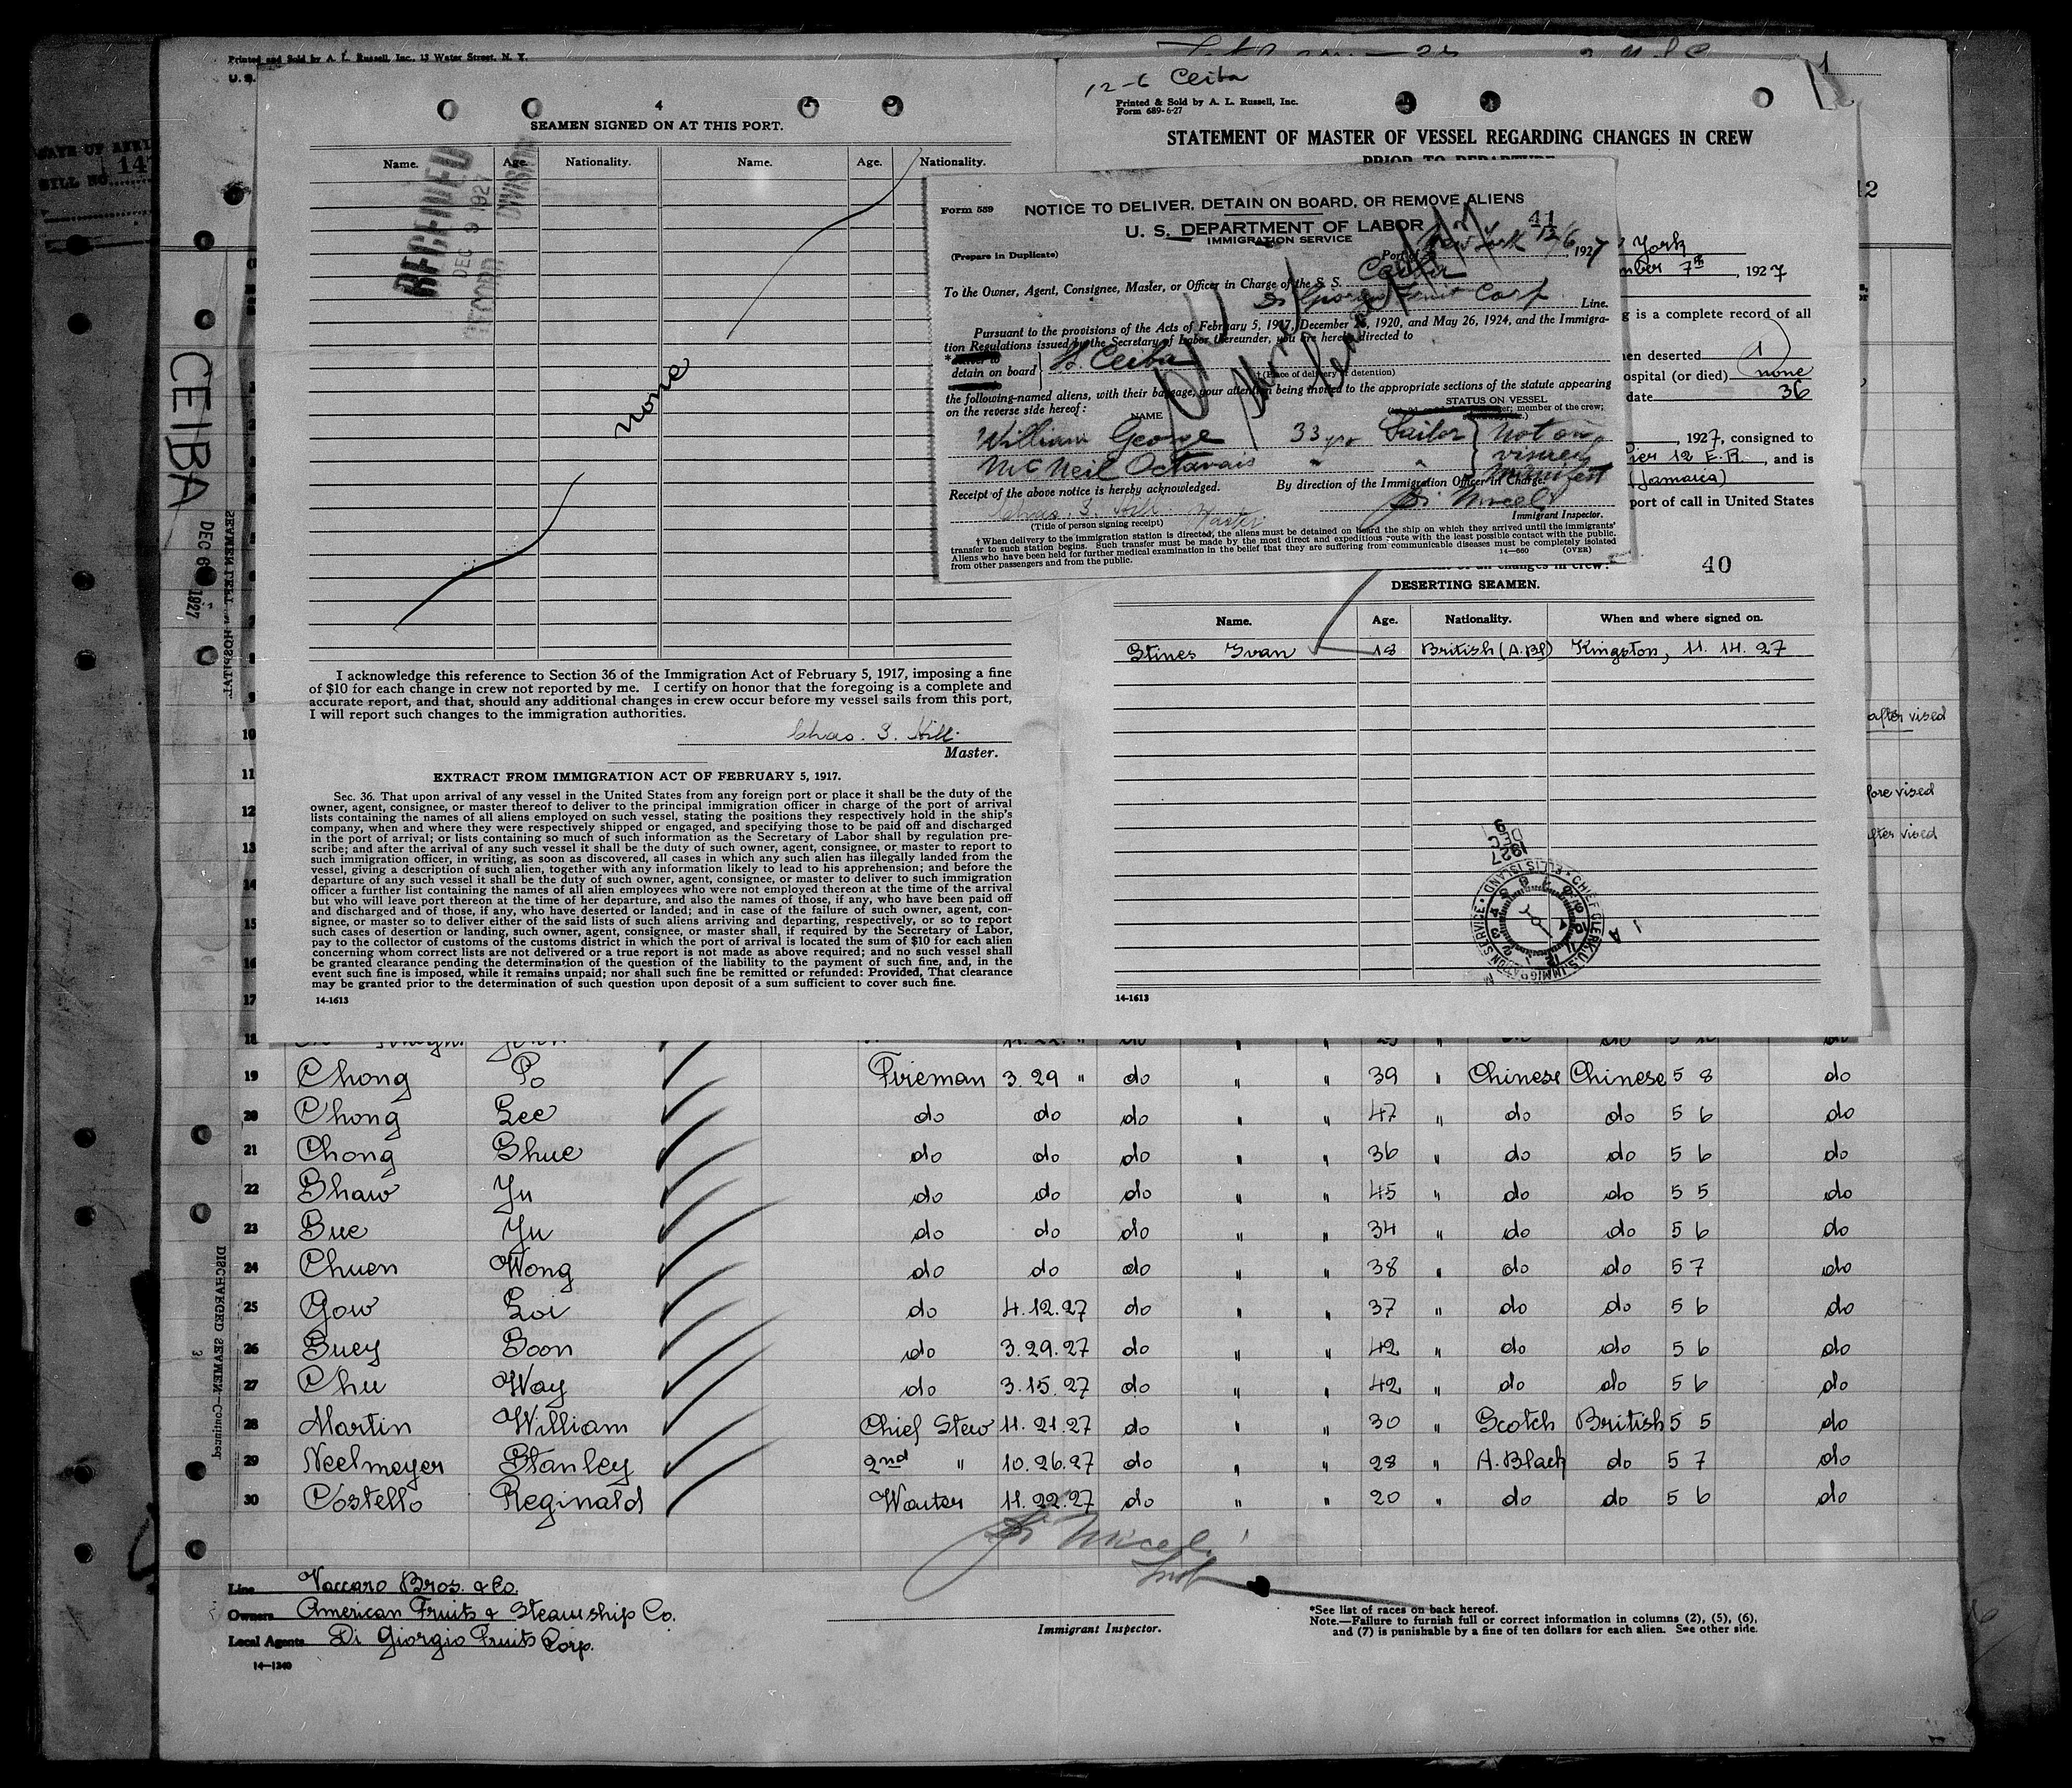 Printed and Sold by A. L. Russell, Inc., 13 Water Street, N. Y.
U. S.
BILL NO. 147
CEIBA
DEC 6 1927
DISCHARGED SEAMEN—Continued
3
4
SEAMEN SIGNED ON AT THIS PORT.
Name. Age. Nationality. Name. Age. Nationality.
RECEIVED
DEC 9 1927
RECORD DIVISION
none
I acknowledge this reference to Section 36 of the Immigration Act of February 5, 1917, imposing a fine
of $10 for each change in crew not reported by me. I certify on honor that the foregoing is a complete and
accurate report, and that, should any additional changes in crew occur before my vessel sails from this port,
I will report such changes to the immigration authorities.
Chas. S. Hill.
Master.
EXTRACT FROM IMMIGRATION ACT OF FEBRUARY 5, 1917.
Sec. 36. That upon arrival of any vessel in the United States from any foreign port or place it shall be the duty of the
owner, agent, consignee, or master thereof to deliver to the principal immigration officer in charge of the port of arrival
lists containing the names of all aliens employed on such vessel, stating the positions they respectively hold in the ship's
company, when and where they were respectively shipped or engaged, and specifying those to be paid off and discharged
in the port of arrival; or lists containing so much of such information as the Secretary of Labor shall by regulation pre-
scribe; and after the arrival of any such vessel it shall be the duty of such owner, agent, consignee, or master to report to
such immigration officer, in writing, as soon as discovered, all cases in which any such alien has illegally landed from the
vessel, giving a description of such alien, together with any information likely to lead to his apprehension; and before the
departure of any such vessel it shall be the duty of such owner, agent, consignee, or master to deliver to such immigration
officer a further list containing the names of all alien employees who were not employed thereon at the time of the arrival
but who will leave port thereon at the time of her departure, and also the names of those, if any, who have been paid off
and discharged and of those, if any, who have deserted or landed; and in case of the failure of such owner, agent, con-
signee, or master so to deliver either of the said lists of such aliens arriving and departing, respectively, or so to report
such cases of desertion or landing, such owner, agent, consignee, or master shall, if required by the Secretary of Labor,
pay to the collector of customs of the customs district in which the port of arrival is located the sum of $10 for each alien
concerning whom correct lists are not delivered or a true report is not made as above required; and no such vessel shall
be granted clearance pending the determination of the question of the liability to the payment of such fine, and, in the
event such fine is imposed, while it remains unpaid; nor shall such fine be remitted or refunded: Provided, That clearance
may be granted prior to the determination of such question upon deposit of a sum sufficient to cover such fine.
14-1613
12-6 Ceiba
Printed & Sold by A. L. Russell, Inc.
Form 689-6-27
1
STATEMENT OF MASTER OF VESSEL REGARDING CHANGES IN CREW
PRIOR TO DEPARTURE
12
York
mber 7th, 1927
g is a complete record of all
en deserted 1
ospital (or died) none
date 36
, 1927, consigned to
ier 12 E.R., and is
(Jamaica)
port of call in United States
Form 559
NOTICE TO DELIVER, DETAIN ON BOARD, OR REMOVE ALIENS
U. S. DEPARTMENT OF LABOR
IMMIGRATION SERVICE
41
(Prepare in Duplicate)
Port of New York 12/6, 1927
To the Owner, Agent, Consignee, Master, or Officer in Charge of the S. S. Ceiba
Di Giorgio Fruit Corp Line.
Pursuant to the provisions of the Acts of February 5, 1917, December 26, 1920, and May 26, 1924, and the Immigra-
tion Regulations issued by the Secretary of Labor thereunder, you are hereby directed to
*deliver to
detain on board } Ceiba
†(Place of delivery or detention)
the following-named aliens, with their baggage, your attention being invited to the appropriate sections of the statute appearing
on the reverse side hereof:
NAME
STATUS ON VESSEL
member of the crew;
William George 33 yrs Sailor } not on
McNeil Octavais " " visued
manifest
Receipt of the above notice is hereby acknowledged.
By direction of the Immigration Officer in Charge:
Chas. S. Hill Master
(Title of person signing receipt)
Immigrant Inspector.
†When delivery to the immigration station is directed, the aliens must be detained on board the ship on which they arrived until the immigrants'
transfer to such station begins. Such transfer must be made by the most direct and expeditious route with the least possible contact with the public.
Aliens who have been held for further medical examination in the belief that they are suffering from communicable diseases must be completely isolated
from other passengers and from the public.
14—660 (OVER)
changes in crew:
40
DESERTING SEAMEN.
Name. Age. Nationality. When and where signed on.
Stines Ivan 18 British (A.Bl) Kingston, 11. 14. 27
after vised
fore vised
after vised
DEC 9 1927
CHIEF CLERK U.S. IMMIGRATION SERVICE ELLIS ISLAND
14-1613
9
10
11
12
13
14
15
16
17
18
19 Chong Po Fireman 3. 29 " do " " 39 " Chinese Chinese 5 8 do
20 Chong Lee do do do " " 47 " do do 5 6 do
21 Chong Shue do do do " " 36 " do do 5 6 do
22 Shaw Yu do do do " " 45 " do do 5 5 do
23 Sue Yu do do do " " 34 " do do 5 6 do
24 Chuen Wong do do do " " 38 " do do 5 7 do
25 Gow Loi do 4. 12. 27 do " " 37 " do do 5 6 do
26 Suey Soon do 3. 29. 27 do " " 42 " do do 5 6 do
27 Chu Way do 3. 15. 27 do " " 42 " do do 5 6 do
28 Martin William Chief Stew 11. 21. 27 do " " 30 " Scotch British 5 5 do
29 Neelmeyer Stanley 2nd " 10. 26. 27 do " " 28 " A. Black do 5 7 do
30 Costello Reginald Waiter 11. 22. 27 do " " 20 " do do 5 6 do
Line Vaccaro Bros. & Co.
Owners American Fruits & Steamship Co.
Local Agents Di Giorgio Fruits Corp.
14—1240
Immigrant Inspector.
*See list of races on back hereof.
Note.—Failure to furnish full or correct information in columns (2), (5), (6),
and (7) is punishable by a fine of ten dollars for each alien. See other side.